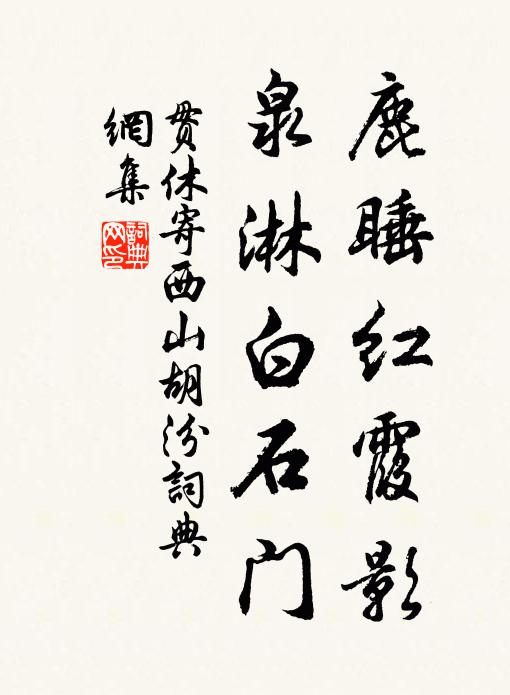 鹿睡紅霞影
泉淋白石門
贯休寄西山胡汾詞典
網集
詞典
网印